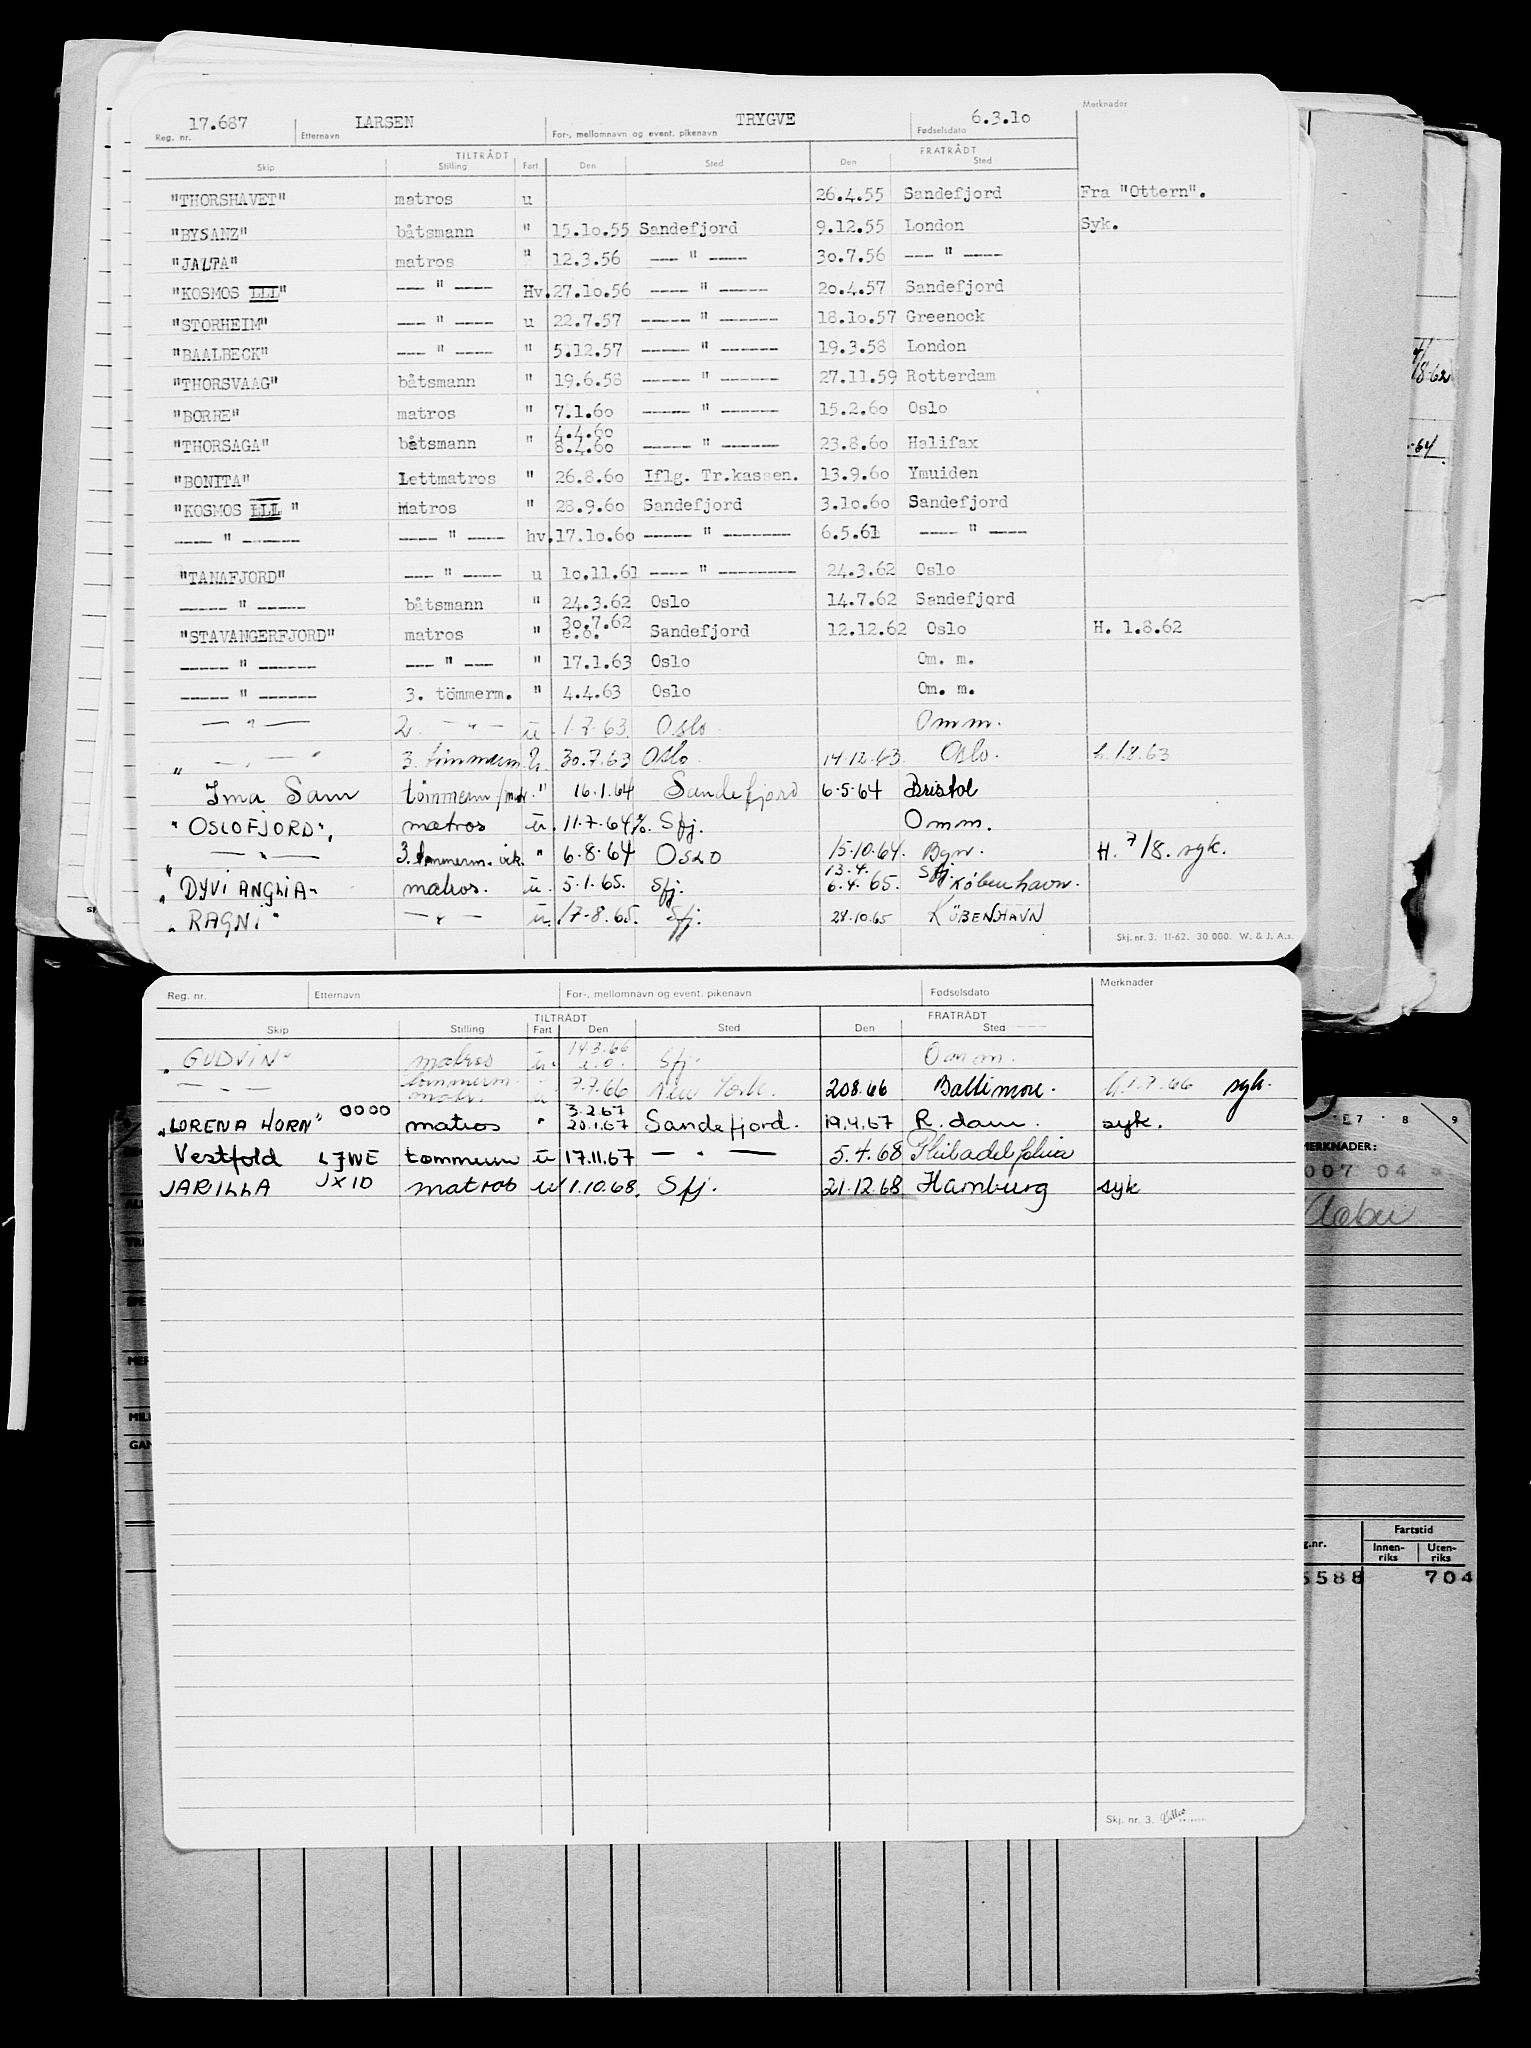 17.687 LARSEN TRYGVE 6.3.1o Merknader
Reg. nr. Etternavn For-, mellomnavn og event. pikenavn Fødselsdato
TILTRÅDT FRATRÅDT
Skip Stilling Fart Den Sted Den Sted
"THORSHAVET" matros u 26.4.55 Sandefjord Fra "Ottern".
"BYSANZ" båtsmann " 15.1o.55 Sandefjord 9.12.55 London Syk.
"JALTA" matros " 12.3.56 --- " ---- 30.7.56 --- " ----
"KOSMOS LLL" --- " ---- Hv. 27.1o.56 ---- " ----- 2o.4.57 Sandefjord
"STORHEIM" --- " ---- u 22.7.57 ----- " ------ 18.1o.57 Greenock
"BAALBECK" --- " ---- " 5.12.57 ----- " ------ 19.3.58 London
"THORSVAAG" båtsmann " 19.6.58 ----- " ------ 27.11.59 Rotterdam
"BORRE" matros " 7.1.6o ----- " ------ 15.2.6o Oslo
4.4.6o
"THORSAGA" båtsmann " 8.4.6o ----- " ------ 23.8.6o Halifax
"BONITA" Lettmatros " 26.8.6o Iflg. Tr.kassen. 13.9.6o Ymuiden
"KOSMOS LLL " Matros " 28.9.6o Sandefjord 3.1o.6o Sandefjord
---- " ------ ---- " ---- hv. 17.1o.6o ----- " ------- 6.5.61 ---- " ----
"TANAFJORD" --- " ---- u 1o.11.61 ---- " -------- 24.3.62 Oslo
----- " ----- båtsmann " 24.3.62 Oslo 14.7.62 Sandefjord
30.7.62
"STAVANGERFJORD" matros " e.o. Sandefjord 12.12.62 Oslo H. 1.8.62
----- " ------ --- " --- " 17.1.63 Oslo Om. m.
----- " ------ 3. tömmerm. " 4.4.63 Oslo Om. m.
— " — 2. — " — u. 1.7.63. Oslo. Omm.
" — " — 3. tömmerm. u. 30.7.63 Oslo. 14.12.63. Oslo. h. 1.8.63
Ima Sam tömmerm/matr. " 16.1.64 Sandefjord 6.5.64 Bristol
"OSLOFJORD". matros u. 11.7.64 Sfj. Omm.
" — " — 3. tømmerm. " 6.8.64 OSLO 15.10.64. Bgn. H. 7/8. syk.
13.4. Sfj.
"DYVI ANGLIA" matros. u. 5.1.65. Sfj. 6.4.65. København.
"RAGNI" — " — u. 17.8.65. Sfj. 28.10.65 KÖBENHAVN
Skj. nr. 3. 11-62. 30 000. W. & J. A.s.
Reg. nr. Etternavn For-, mellomnavn og event. pikenavn Fødselsdato Merknader
TILTRÅDT FRATRÅDT
Skip Stilling Fart Den Sted Den Sted
14.3.66
"GUDVIN" matros u. e.o. Sfj. Omm.
— " — tømmerm. matr. u 7.7.66 New York. 20.8.66 Baltimore. h. 1.7.66 syk.
3.2.67
"LORENA HORN" OOOO matros " 20.1.67 Sandefjord. 19.4.67 R.dam. syk.
Vestfold LJWE tømmerm u 17.11.67 — " — 5.4.68 Philadelphia
JARILLA JXID matros u 1.10.68. Sfj. 21.12.68 Hamburg syk
Skj. nr. 3.
7 8 9
MERKNADER:
007 04
Fartstid
g.nr. Innen-riks Uten-riks
5588 704
8.62
.64